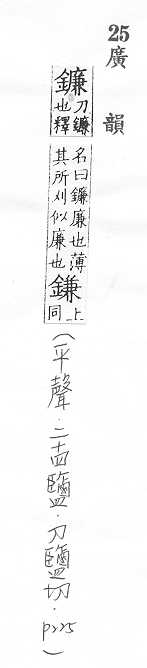 25
廣韻
鐮
刀鐮
也釋
名曰鐮廉也薄
其所刈似廉也
鎌
上
同
(平聲．二十四鹽．力鹽切．p225)